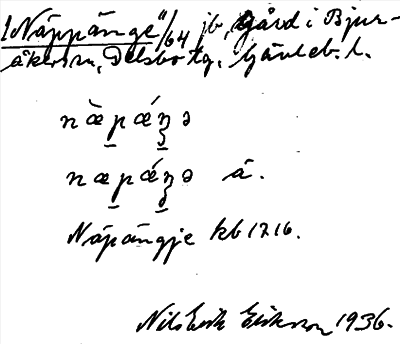 "Näppänge" 1/64 jb, Gård i Bjur-
åkers sn, Delsbo tg, Gävleb. l.
næ̀pǽŋə
næpǽŋə å.
Näpängje kb 1716.
Nils Erik Eriksson 1936.